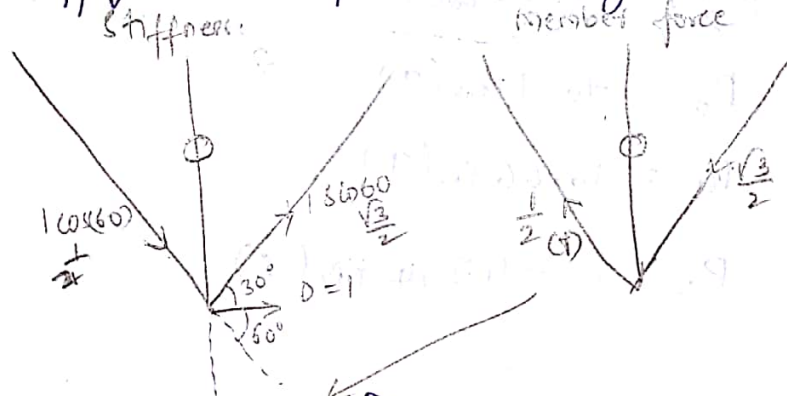 Stiffness.
Member force
1 cos(60)
1/2
1 s(o60
√3/2
30°
D = 1
60°
1/2
(T)
√3/2